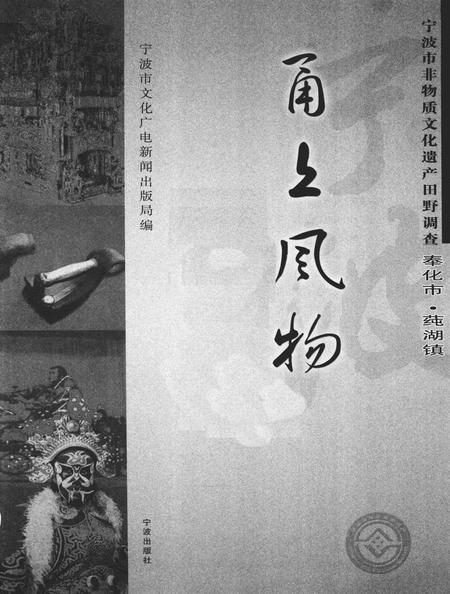 宁波市非物质文化遗产田野调查 奉化市·莼湖镇
甬上风物
宁波市文化广电新闻出版局编
宁波出版社